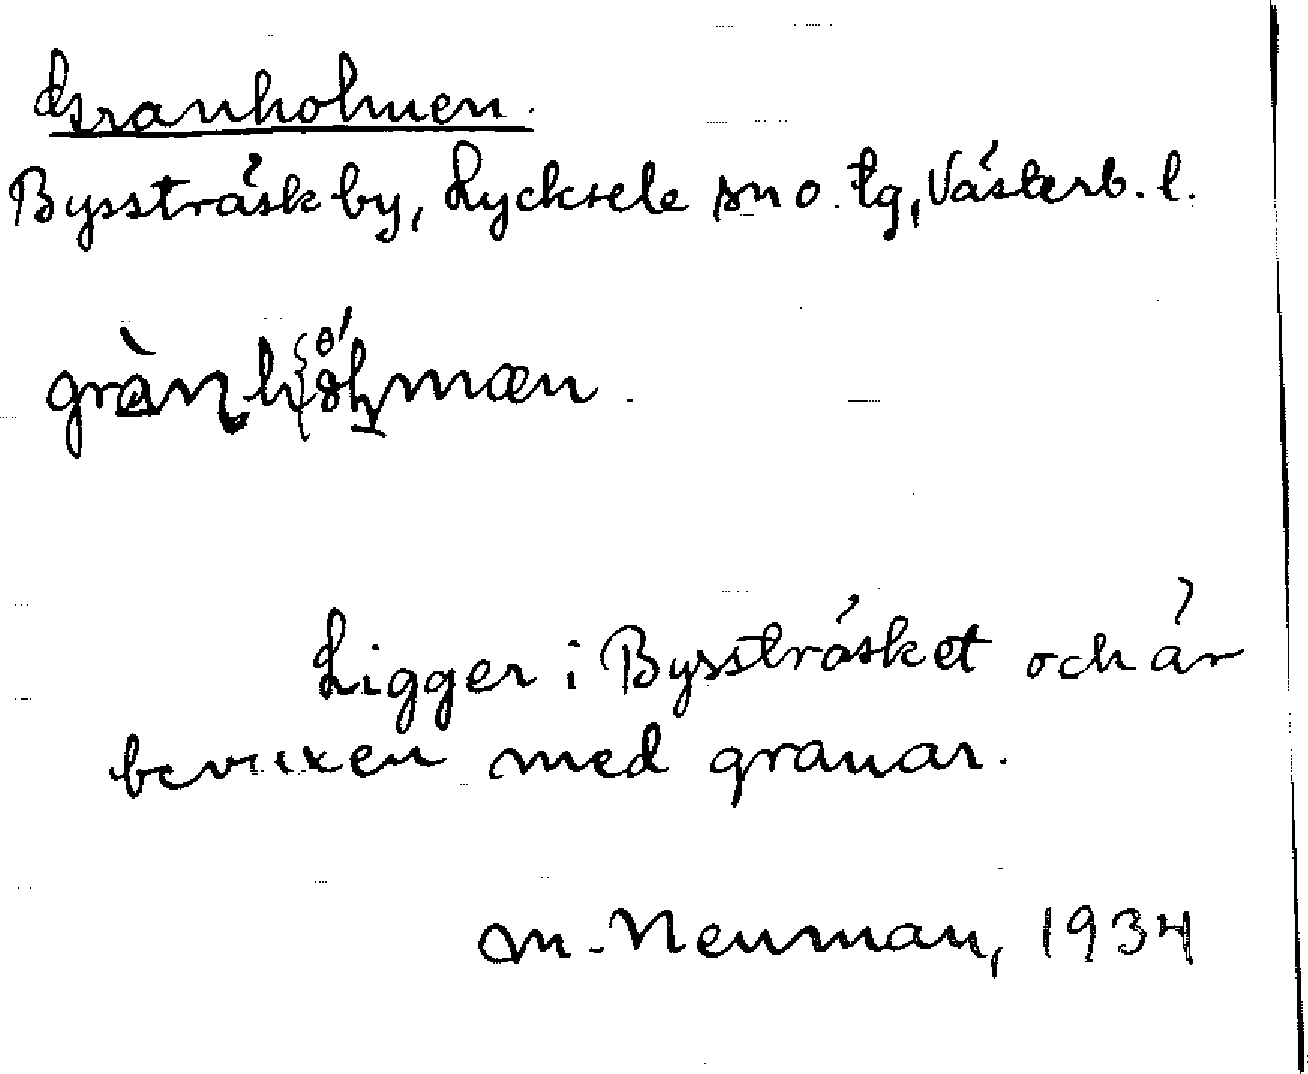 Granholmen.
Byssträsk by, Lycksele sn o. tg, Västerb. l.
Ligger i Bysträsket och är
bevuxen med granar.
M. Neuman, 1934